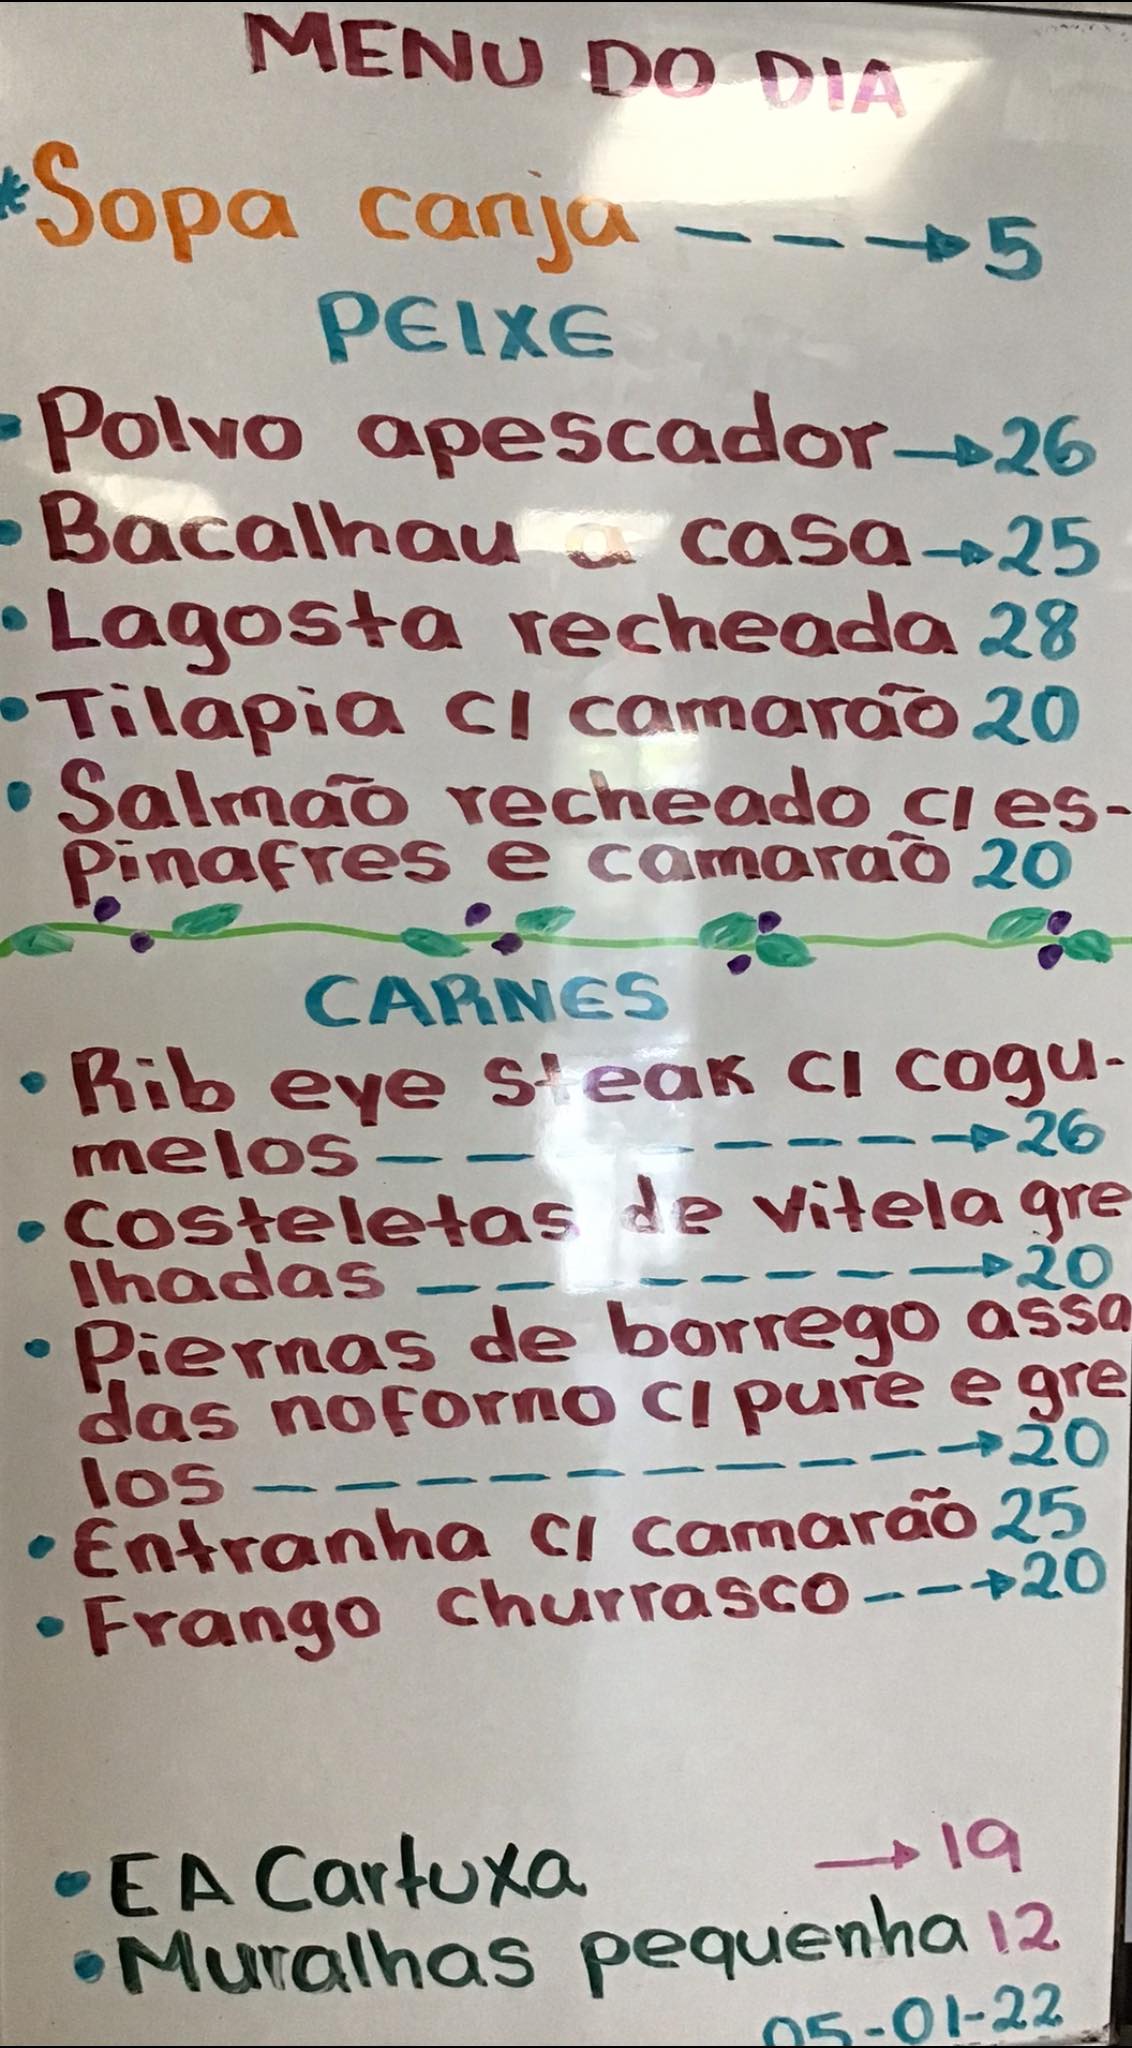 MENU DO DIA
*Sopa canja ---→5
PEIXE
• Polvo apescador→26
• Bacalhau a casa→25
• Lagosta recheada 28
• Tilapia c/ camarão 20
• Salmão recheado c/ es-
pinafres e camarão 20
CARNES
• Rib eye steak c/ cogu-
melos --------→26
• Costeletas de vitela gre
lhadas --------→20
• Piernas de borrego assa
das noforno c/ pure e gre
los ----------→20
• Entranha c/ camarão 25
• Frango churrasco--→20
• EA Cartuxa → 19
• Muralhas pequenha 12
05-01-22